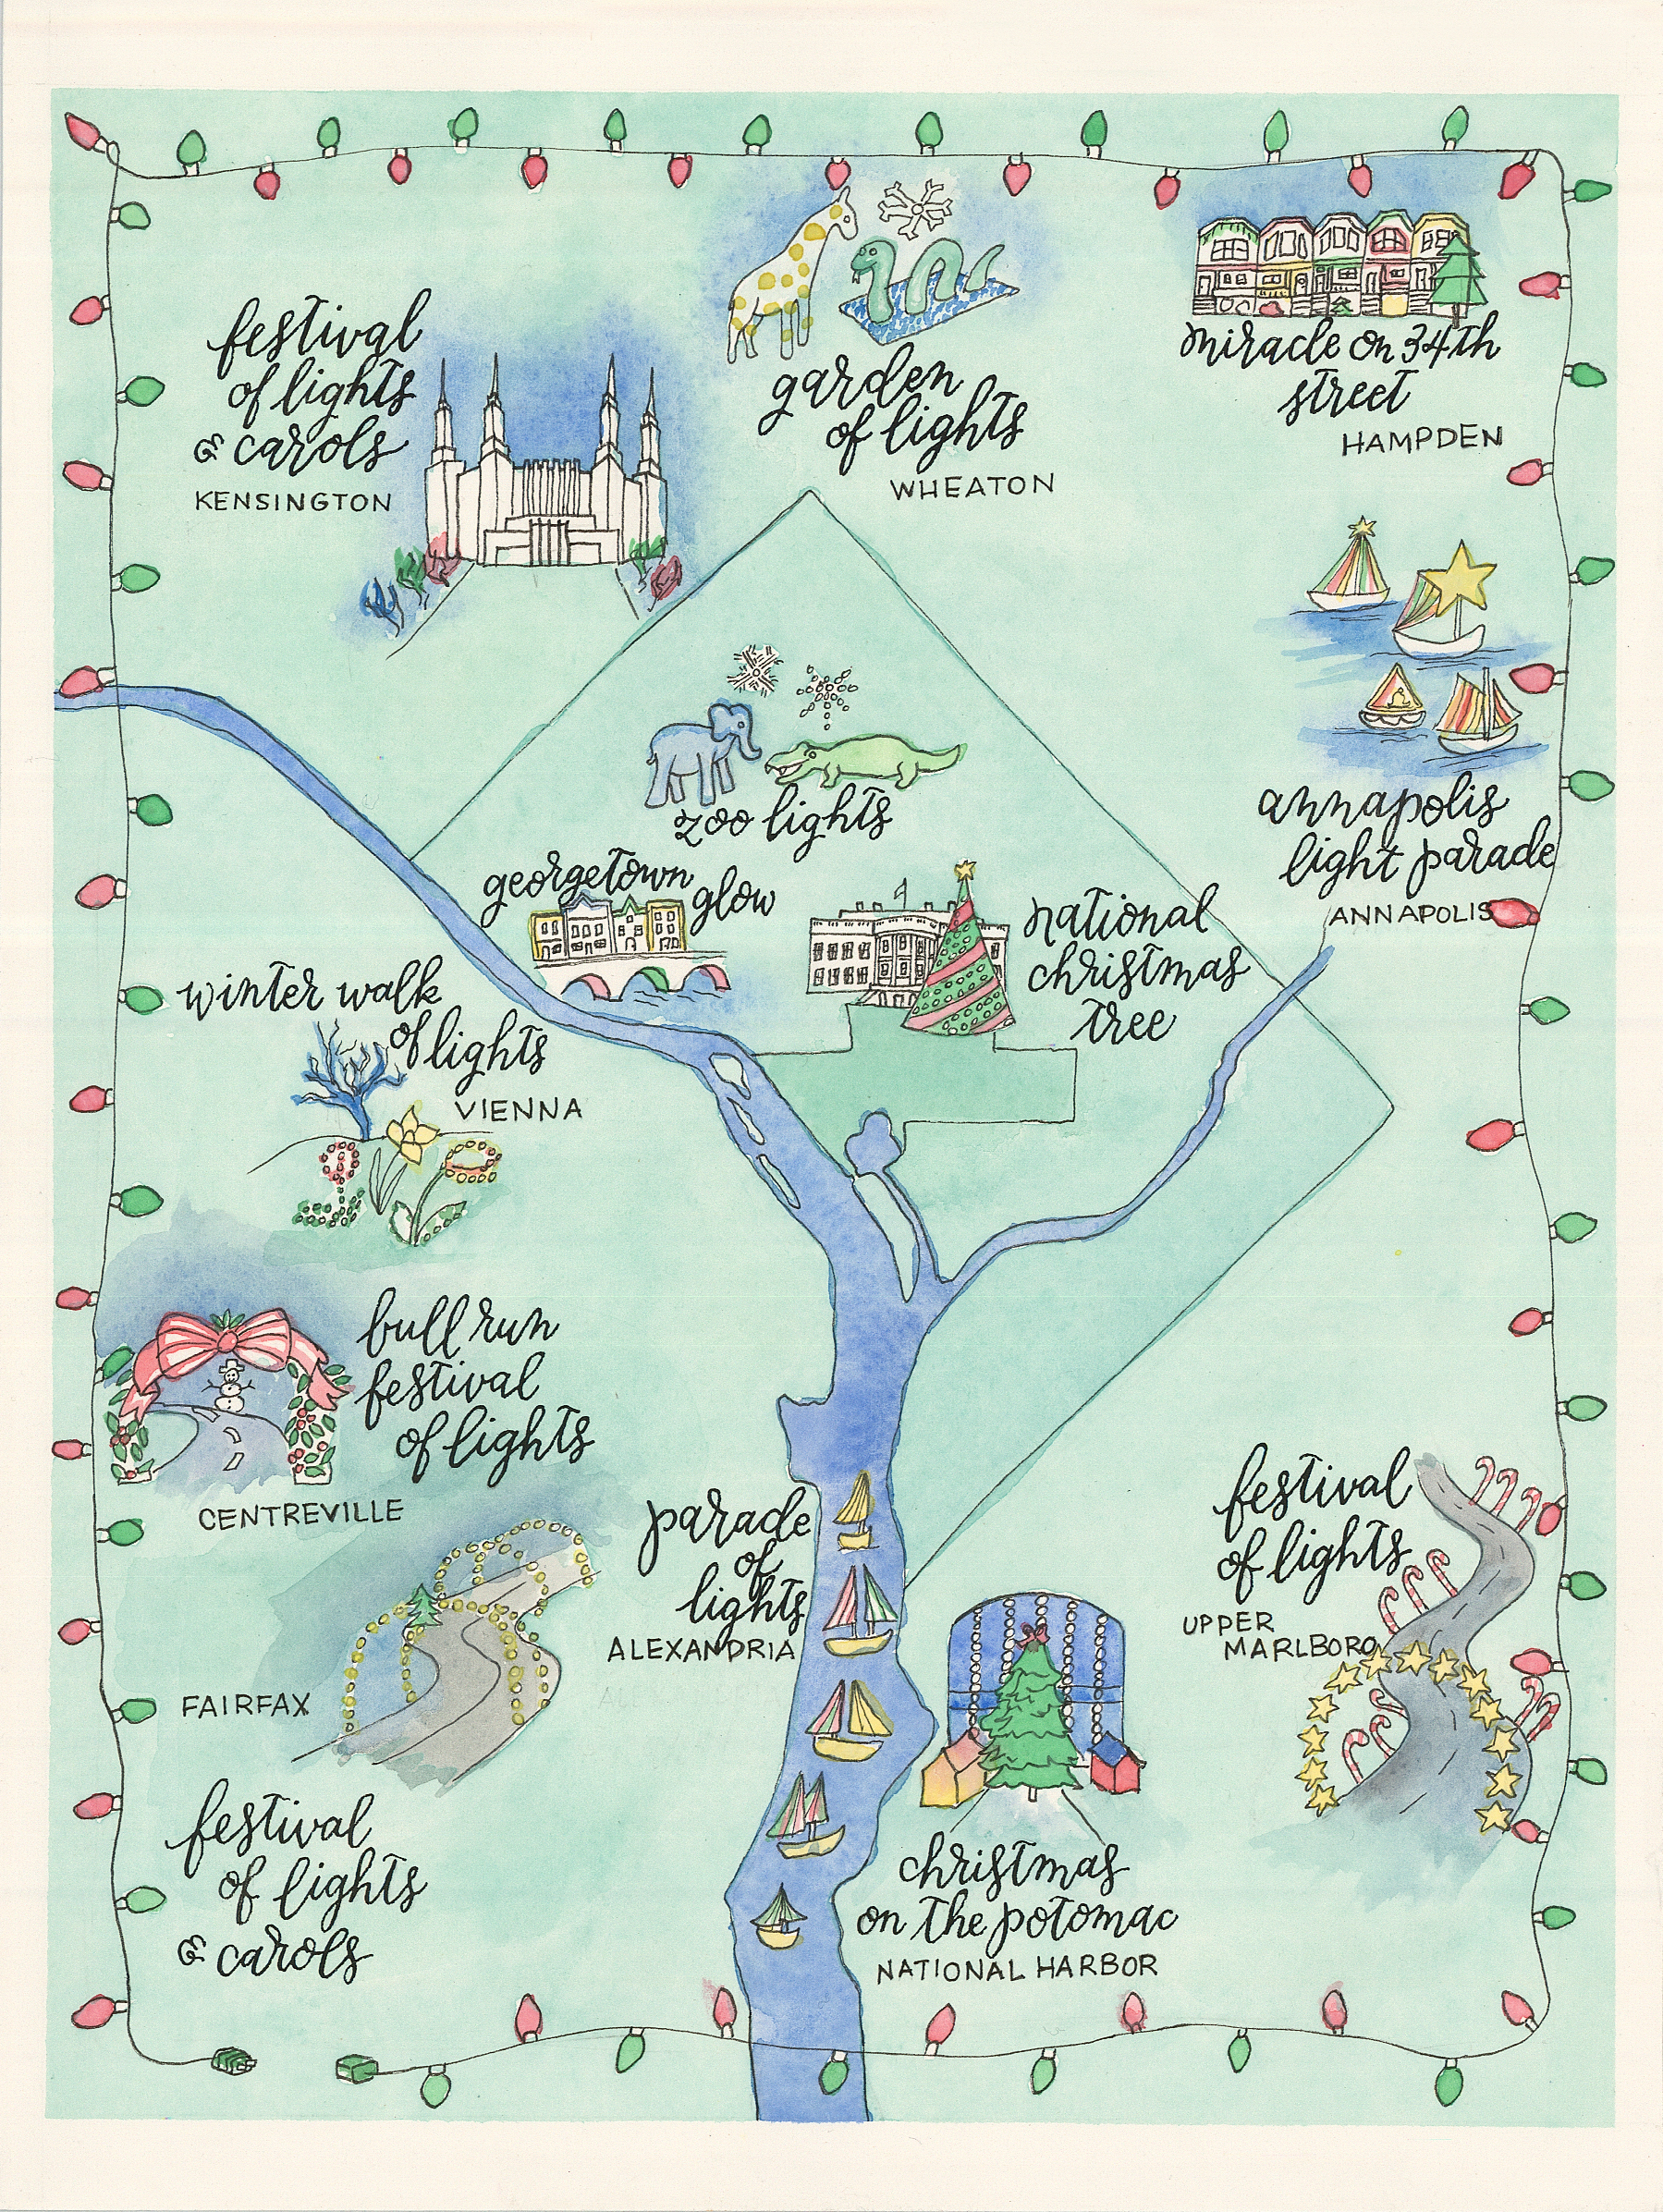 festival
of lights
& carols
KENSINGTON
garden
of lights
WHEATON
miracle on 34th
street
HAMPDEN
annapolis
light parade
ANNAPOLIS
zoo lights
georgetown
glow
national
christmas
tree
winter walk
of lights
VIENNA
bull run
festival
of lights
CENTREVILLE
parade
of
lights
ALEXANDRIA
festival
of lights
UPPER
MARLBORO
FAIRFAX
festival
of lights
& carols
christmas
on the potomac
NATIONAL HARBOR